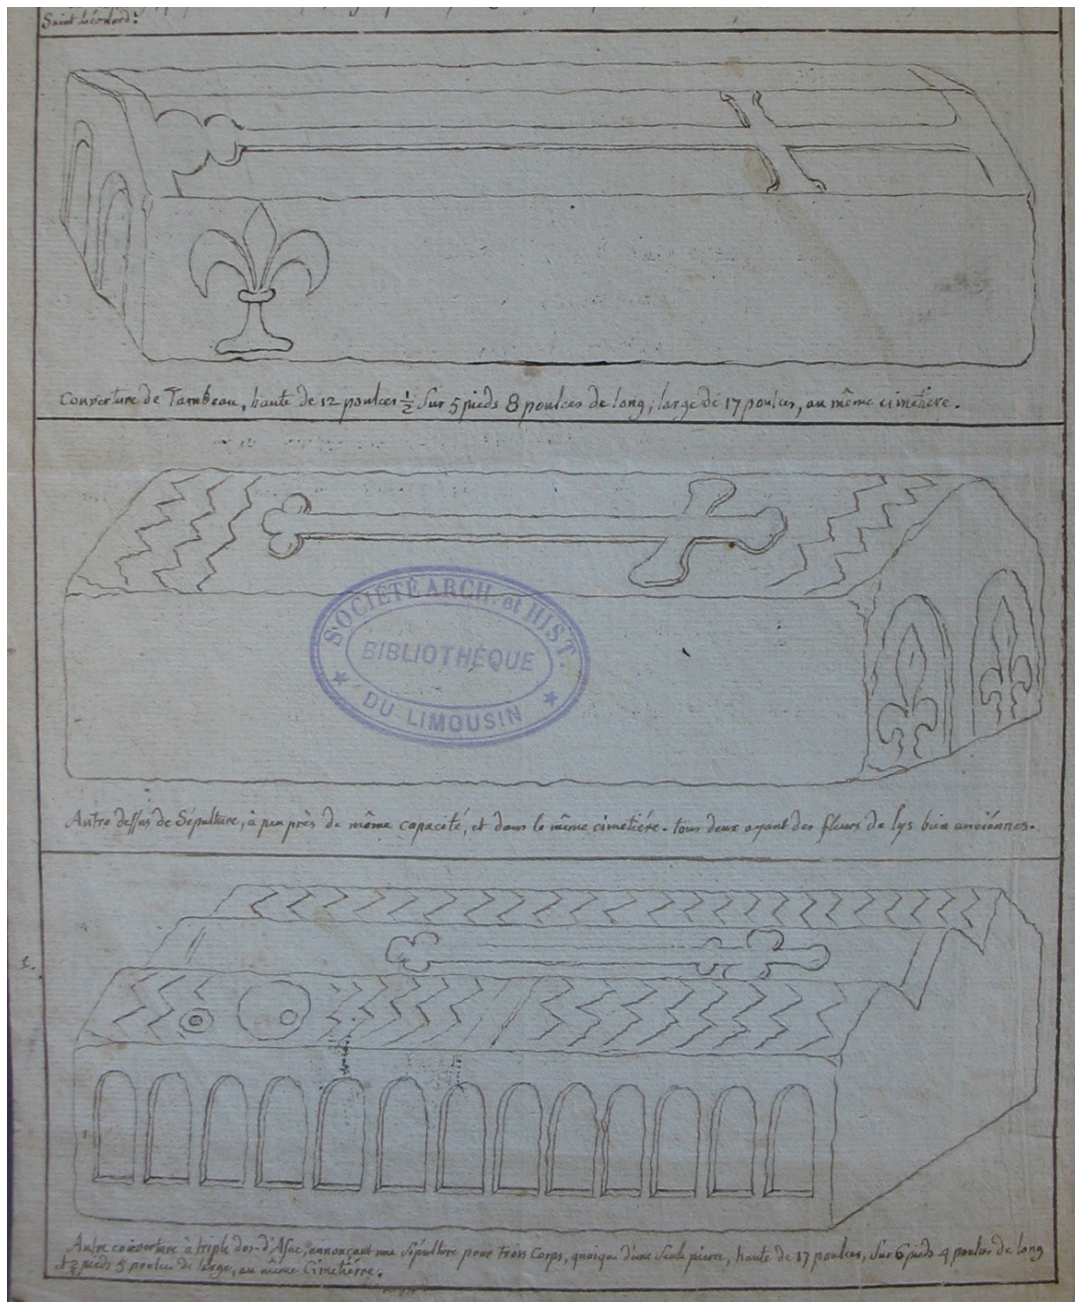 Saint Léonard:
Couverture de Tombeau, haute de 12 poulces ½ sur 5 pieds 8 poulces de long; large de 17 poulces, au même cimetière.
SOCIÉTÉ ARCH. et HIST.
BIBLIOTHÉQUE
DU LIMOUSIN
Autre dessus de Sépulture, à peu près de même capacité, et dans le même cimetiére. tous deux ayant des fleurs de lys bien anciénnes.
Autre couverture à triple dos-d'Asne, annonçant une Sépulture pour trois Corps, quoique d'une seule pierre, haute de 17 poulces, sur 6 pieds 4 poulces de long
et 2 pieds 5 poulces de large, au même Cimetiérre.